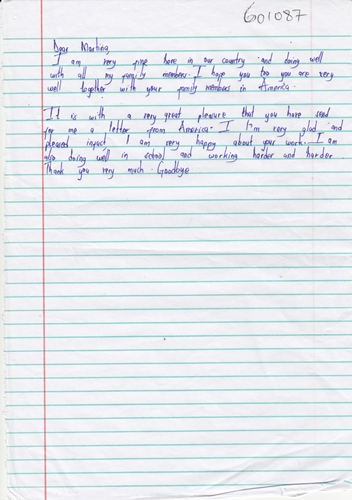 601087
Dear Martina,
I am very fine here in our country and doing well
with all my family members. I hope you too you are very
well together with your family members in America.
It is with a very great pleasure that you have send
for me a letter from America. I I'm very glad and
pleased infact I am very happy about your work. I am
also doing well in school and working harder and harder
Thank you very much. Goodbye